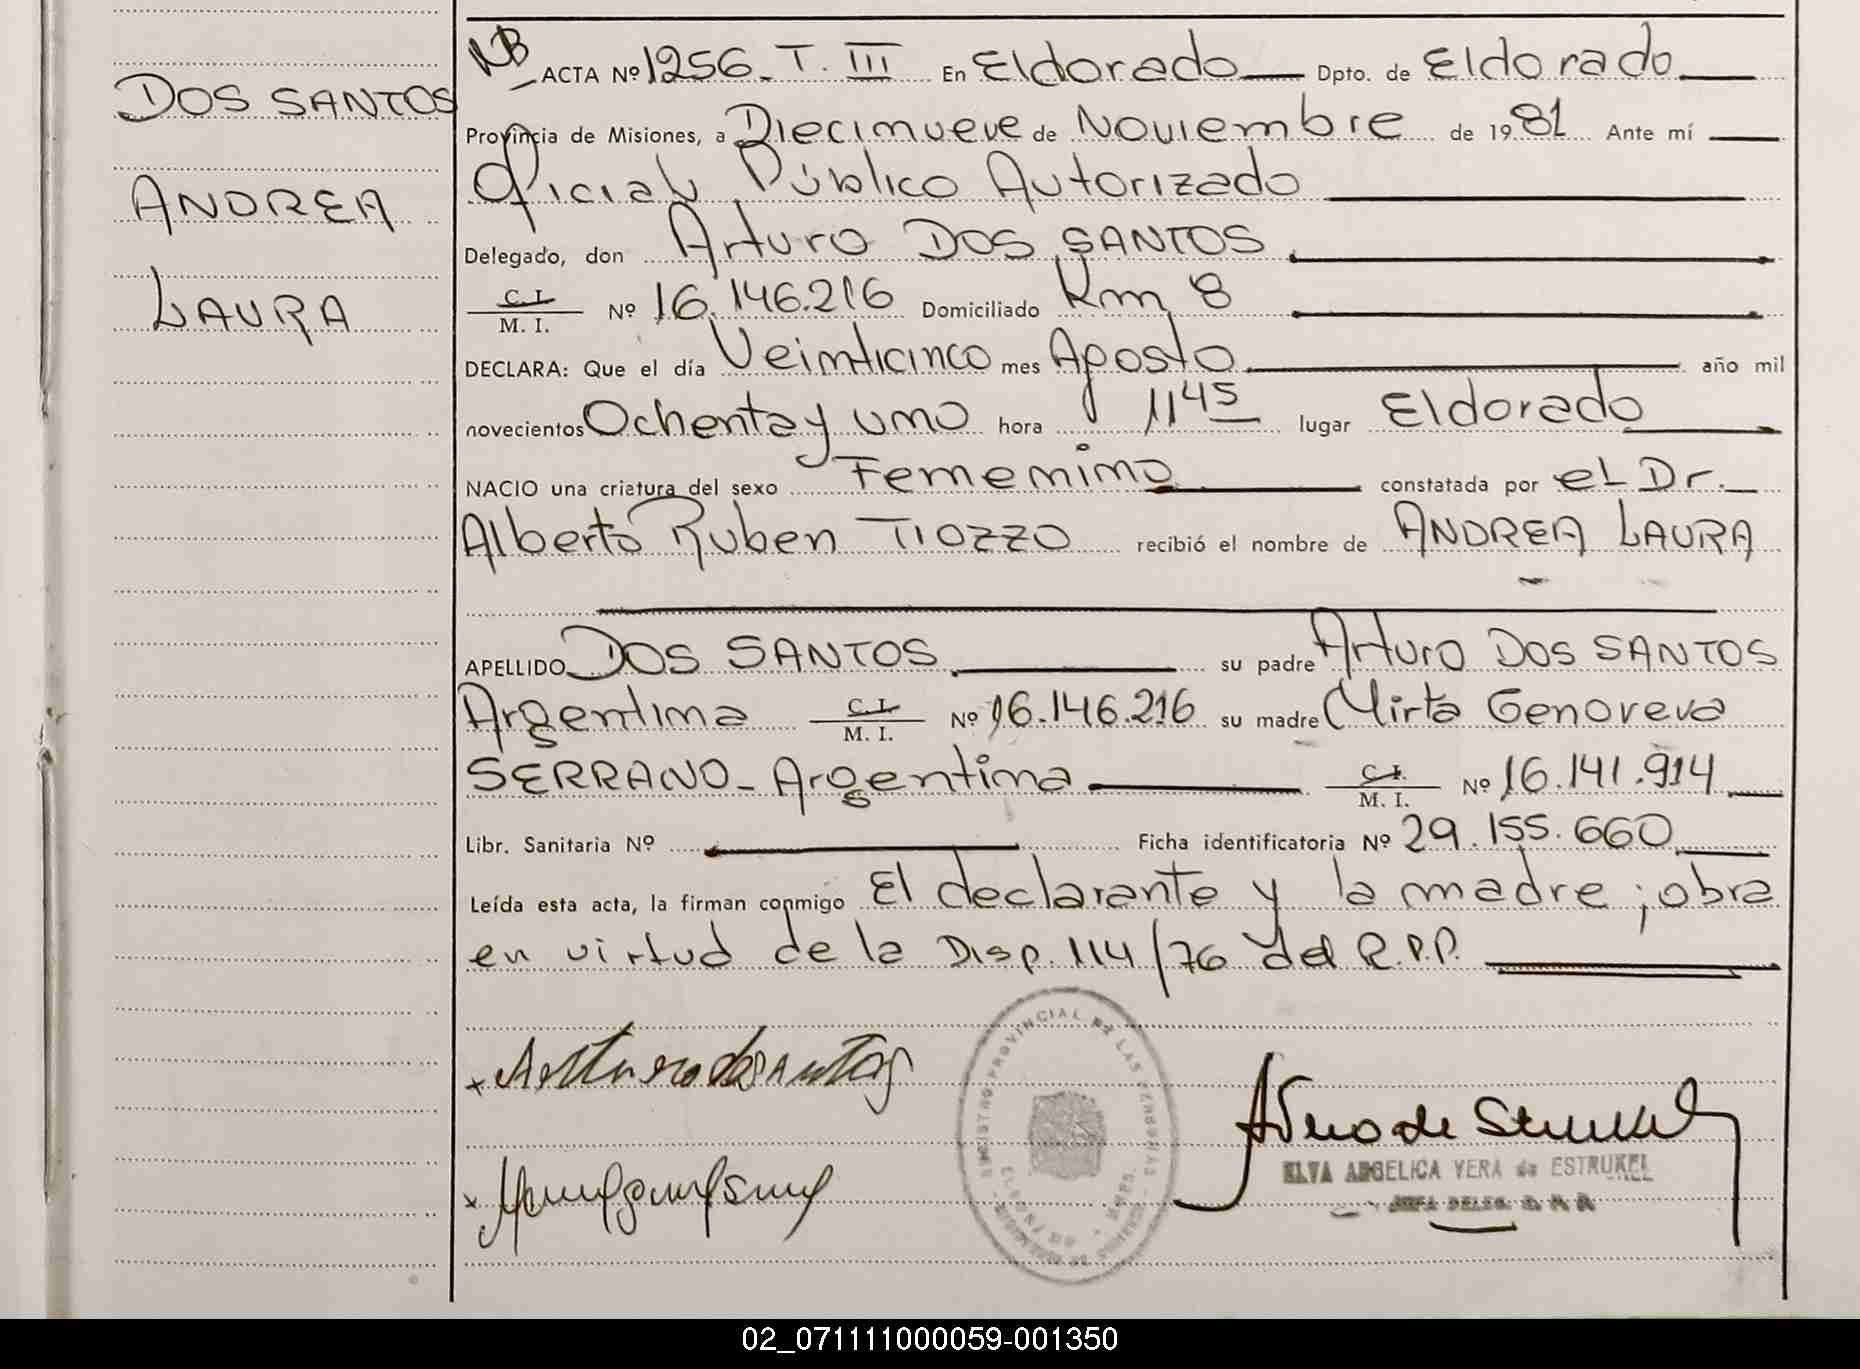 DOS SANTOS
ANDREA
LAURA
NB ACTA Nº 1256. T. III En Eldorado Dpto. de Eldorado
Provincia de Misiones, a Diecinueve de Noviembre de 1981 Ante mí
Oficial Público Autorizado
Delegado, don Arturo DOS SANTOS
C. I. / M. I. Nº 16.146.216 Domiciliado Km 8
DECLARA: Que el día Veinticinco mes Agosto año mil
novecientos Ochenta y uno hora 11 45 lugar Eldorado
NACIO una criatura del sexo Femenino constatada por el Dr.
Alberto Ruben TIOZZO recibió el nombre de ANDREA LAURA
APELLIDO DOS SANTOS su padre Arturo DOS SANTOS
Argentina C. I. / M. I. Nº 16.146.216 su madre Mirta Genoveva
SERRANO - Argentina C. I. / M. I. Nº 16.141.914
Libr. Sanitaria Nº Ficha identificatoria Nº 29.155.660
Leída esta acta, la firman conmigo El declarante y la madre ; obra
en virtud de la Disp. 114/76 del R.P.P.
REGISTRO PROVINCIAL DE LAS PERSONAS
ELVA ANGELICA VERA de ESTRUKEL
02_071111000059-001350